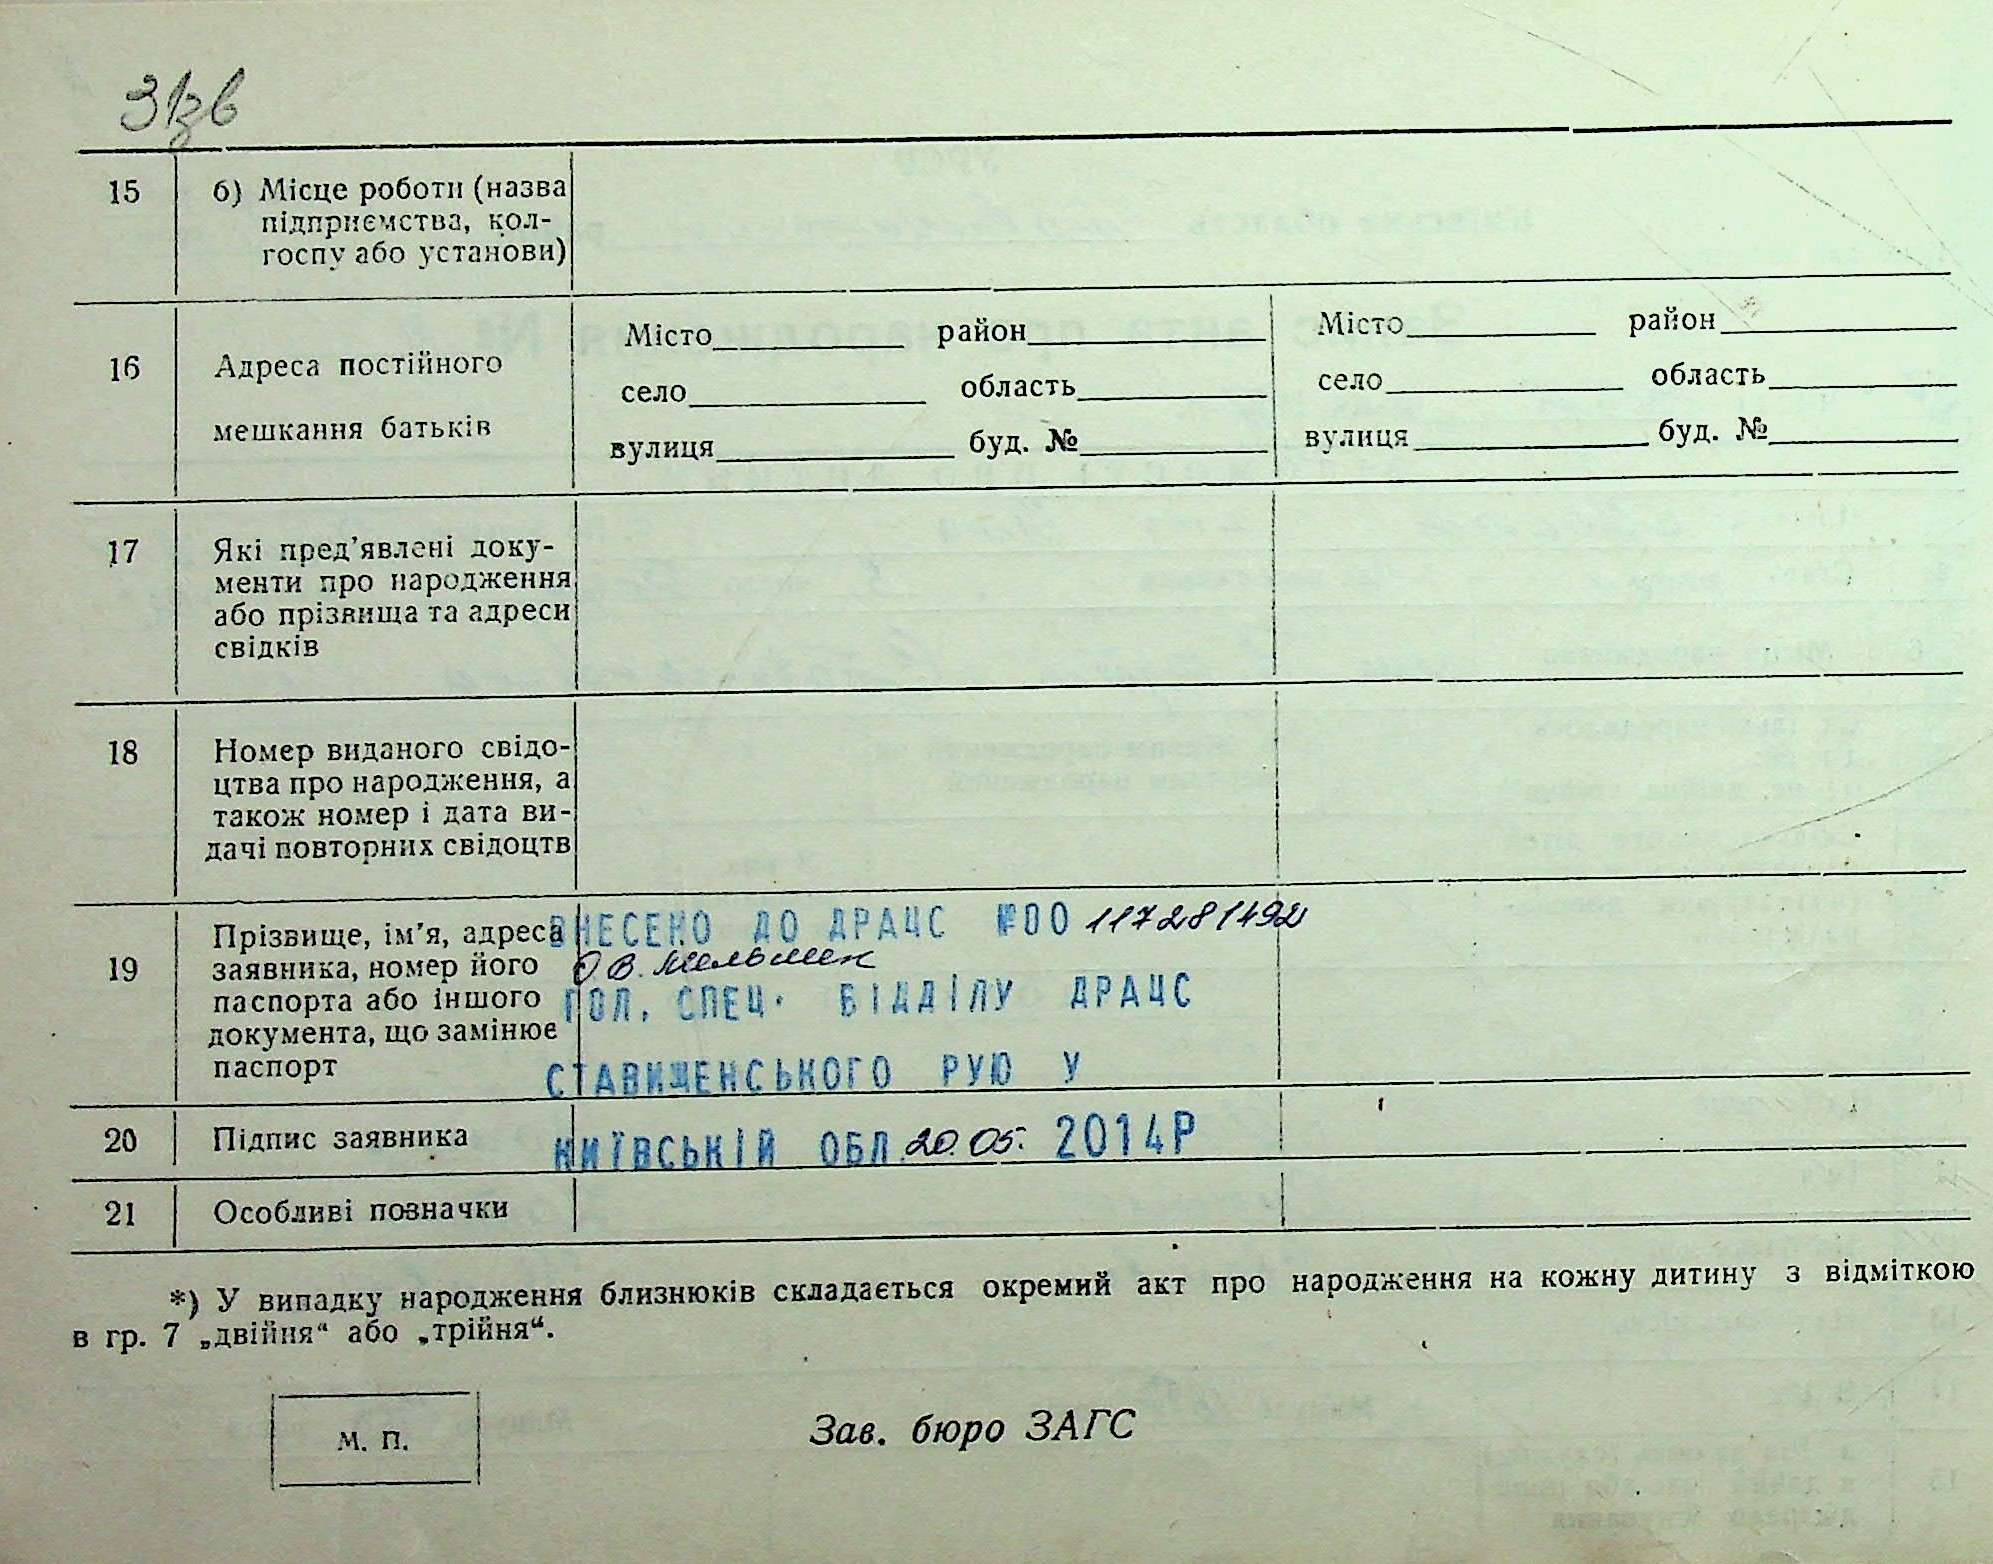 31зв
15 б) Місце роботи (назва
підприємства, кол-
госпу або установи)
16 Адреса постійного
мешкання батьків
Місто район
село область
вулиця буд. №
Місто район
село область
вулиця буд. №
17 Які пред'явлені доку-
менти про народження
або прізвища та адреси
свідків
18 Номер виданого свідо-
цтва про народження, а
також номер і дата ви-
дачі повторних свідоцтв
19 Прізвище, ім'я, адреса
заявника, номер його
паспорта або іншого
документа, що замінює
паспорт
ВНЕСЕНО ДО ДРАЦС №00 117281492
О.В. Мельник
ГОЛ. СПЕЦ. ВІДДІЛУ ДРАЦС
СТАВИЩЕНСЬКОГО РУЮ У
КИЇВСЬКІЙ ОБЛ. 20.05. 2014Р
20 Підпис заявника
21 Особливі позначки
*) У випадку народження близнюків складається окремий акт про народження на кожну дитину з відміткою
в гр. 7 „двійня“ або „трійня“.
М. П.
Зав. бюро ЗАГС